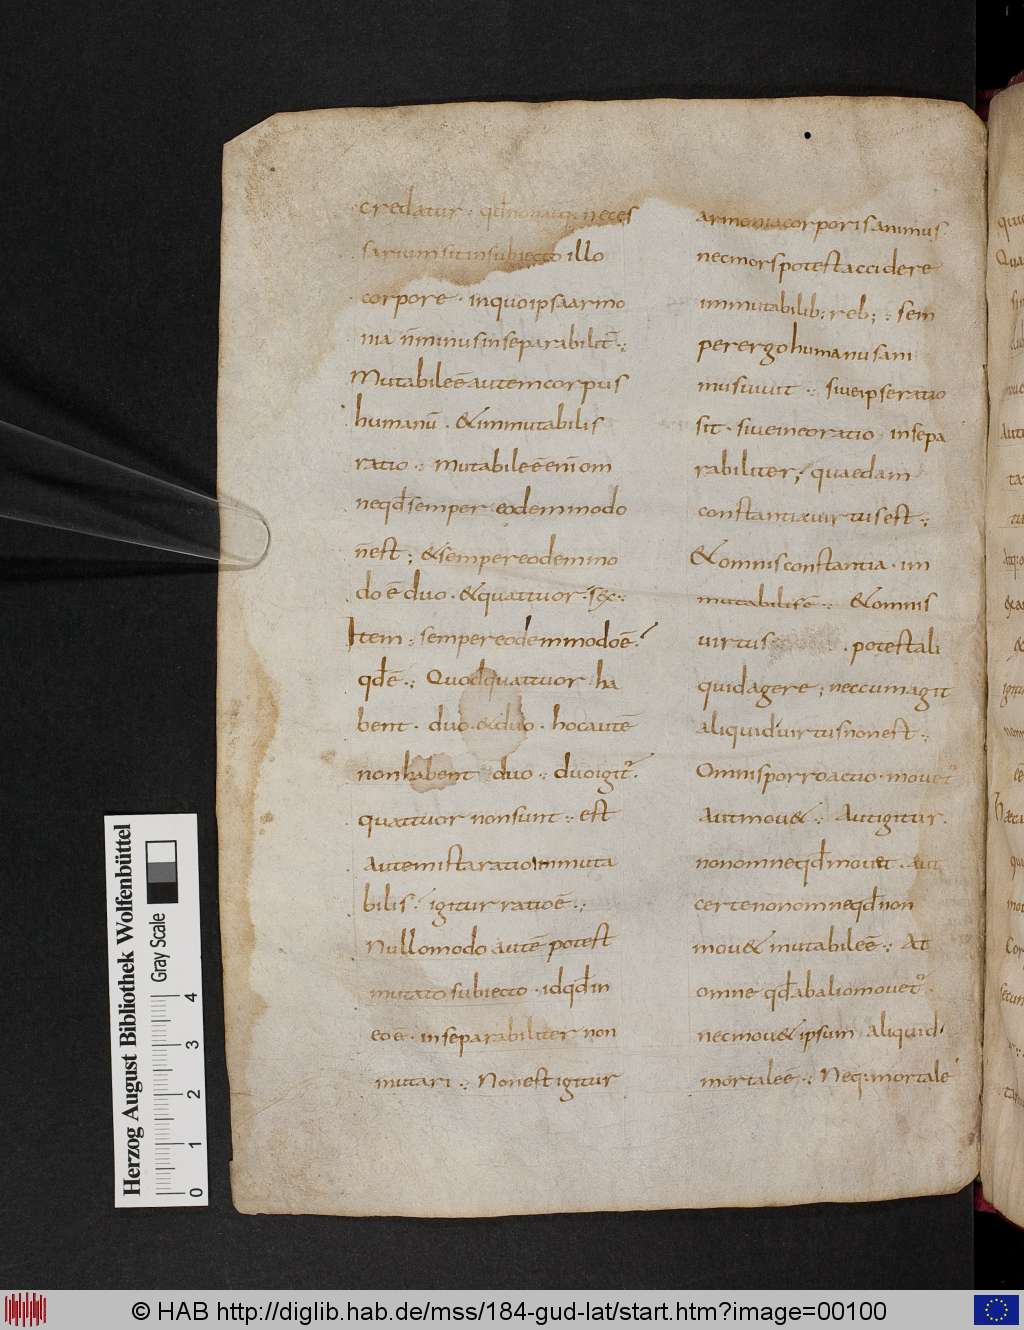 credatur · qđnonatq; neces
sarium sit in subiecto illo
corpore · inquo ipsa armo
nia n̄ minus inseparabilit̄ ·:
Mutabile ē autem corpus
humanū · & immutabilis
ratio ·: mutabile ē enī om
ne qđ semper eodem modo
n̄ est ; & semper eodem mo
do ē duo · & quattuor · sex ·:
Item · semper eodem modo ē
qđ ē ·: Quod quattuor ha
bent · duo · & duo · hoc autē
non habent duo ·: duo igit̄
quattuor non sunt ·: est
autem ista ratio inmuta
bilis · igitur ratio ē ·;
Nullo modo autē potest
mutato subiecto · id qđ in
eo ē · inseparabiliter non
mutari ·: Non est igitur
armonia corporis animus ·
nec mors potest accidere
immutabilib; reb; ·: sem
per ergo humanus ani
mus uiuit ·: siue ipse ratio
sit · siue in eo ratio · insepa
rabiliter ; quaedam
constantiae uirtus est ·:
& omnis constantia · im
mutabilis ē ·: & omnis
uirtus · potest ali
quid agere ; nec cum agit
aliquid uirtus non est ·:
Omnis porro actio · mouet̄
Aut mou& ·: Aut igitur ·
non omne qđ mouet · aut
certe non omne qđ non
mou& mutabile ē ·: At
omne qđ ab alio mouet̄ ·
nec mou& ipsum aliquid ·
mortale ē ·: Neq; mortale
Herzog August Bibliothek Wolfenbüttel
Gray Scale
0 1 2 3 4
© HAB http://diglib.hab.de/mss/184-gud-lat/start.htm?image=00100